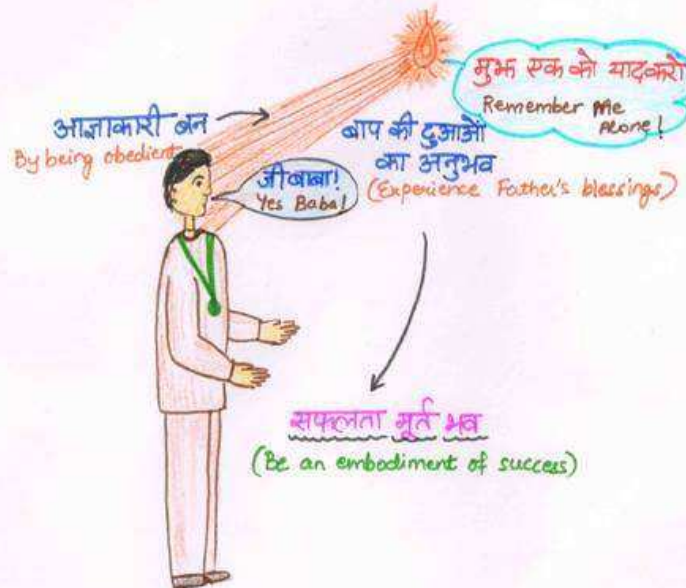 मुझ एक को याद करो
Remember Me
Alone!
आज्ञाकारी बन
By being obedient
बाप की दुआओं
का अनुभव
(Experience Father's blessings)
जी बाबा!
Yes Baba!
सफलता मूर्त भव
(Be an embodiment of success)